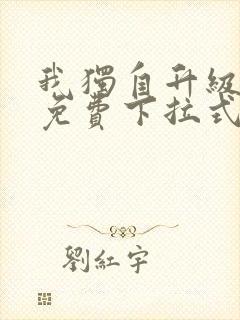 我獨自升級
免費下拉式
劉紅宇